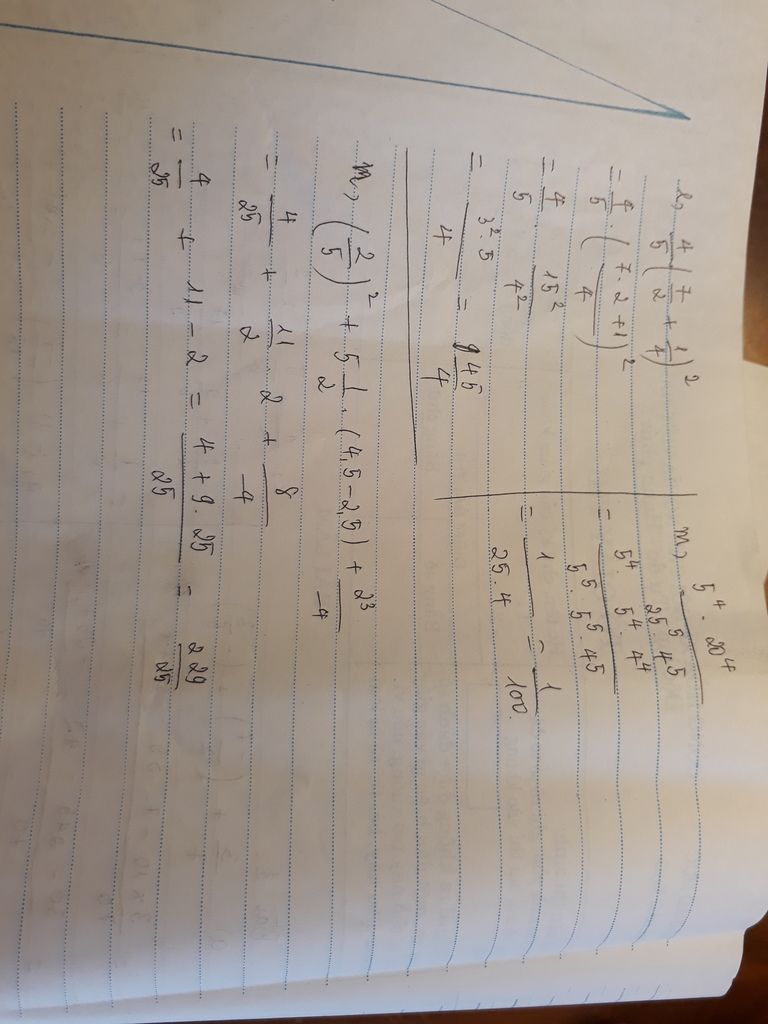 l, 4/5 (7/2 + 1/4)²
= 4/5 · (7·2+1 / 4)²
= 4/5 · 15²/4²
= 3²·5 / 4 = 45/4
m, 5⁴ · 20⁴ / 25⁵ · 4⁵
= 5⁴ · 5⁴ · 4⁴ / 5⁵ · 5⁵ · 4⁵
= 1 / 25·4 = 1/100.
n, (2/5)² + 5 1/2 · (4,5 - 2,5) + 2³/-4
= 4/25 + 11/2 · 2 + 8/-4
= 4/25 + 11 - 2 = 4 + 9·25 / 25 = 229/25